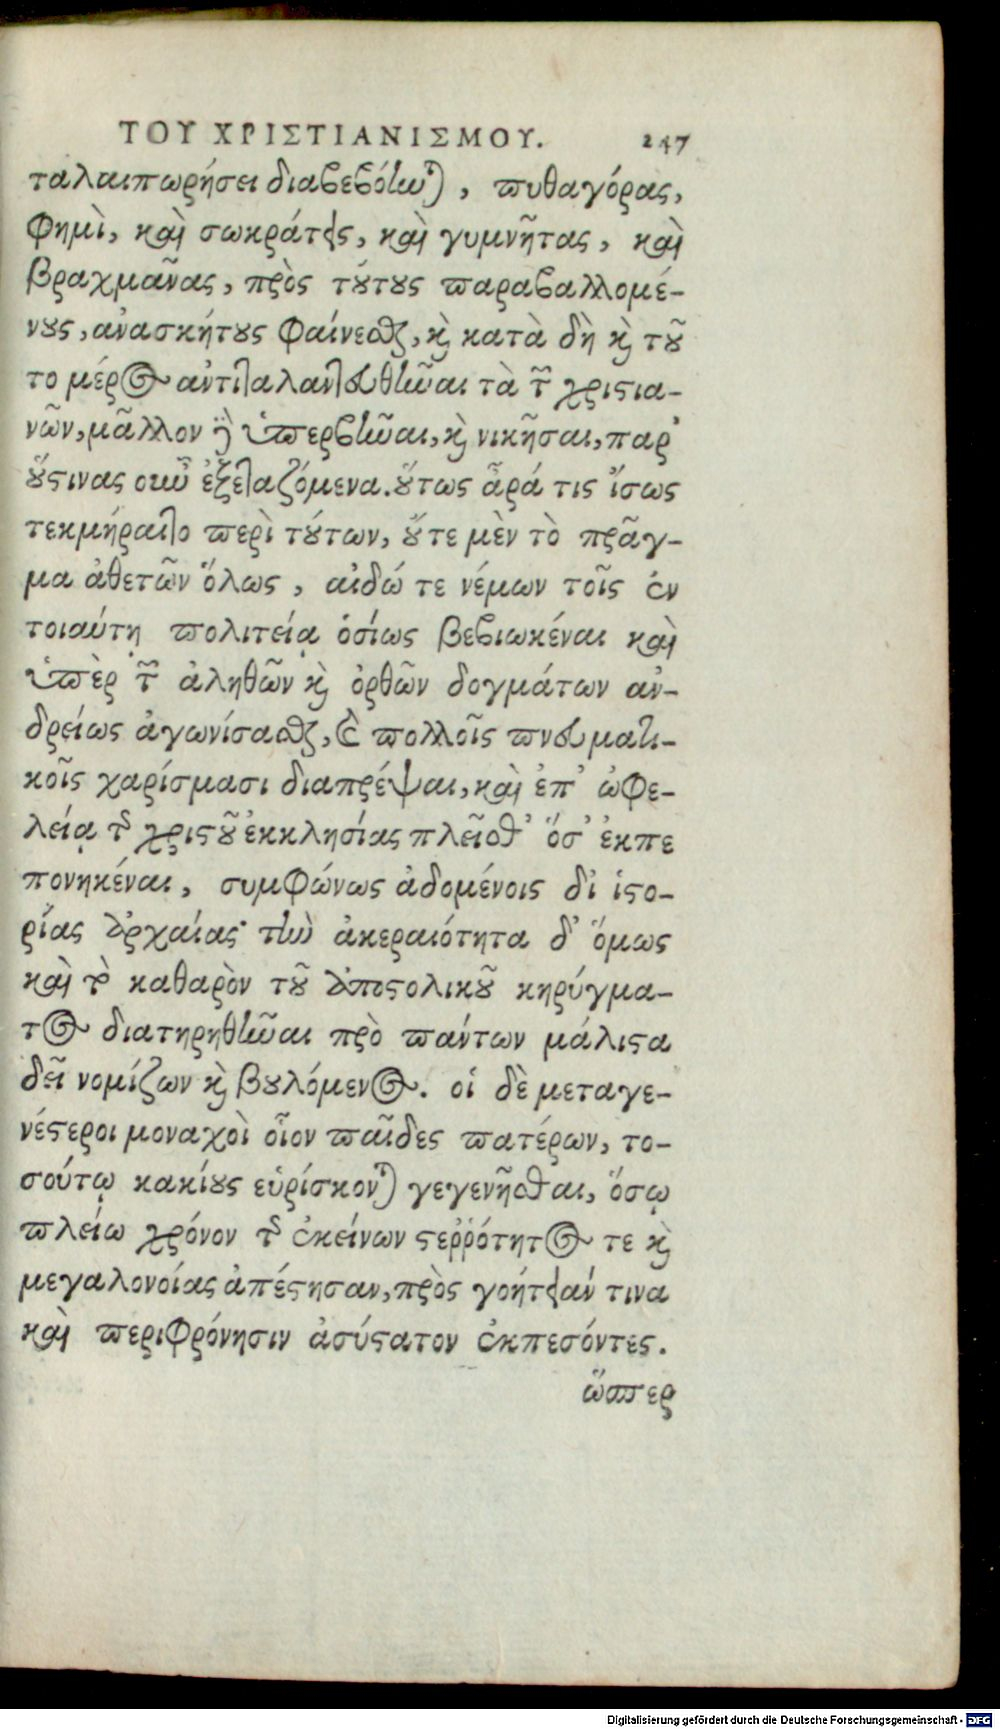 ΤΟΥ ΧΡΙΣΤΙΑΝΙΣΜΟΥ. 247
ταλαιπωρήσει διαβεβόηνται, πυθαγόρας,
φημὶ, καὶ σωκράτεις, καὶ γυμνῆτας, καὶ
βραχμᾶνας, πρὸς τούτους παραβαλλομέ-
νους, ἀνασκήτους φαίνεσθαι, καὶ κατὰ δὴ καὶ τοῦ
το μέρος ἀντιταλαντευθῆναι τὰ τῶν χριστια-
νῶν, μᾶλλον δὲ ὑπερβῆναι, καὶ νικῆσαι, παρ'
οὕστινας οὖν ἐξεταζόμενα. οὕτως ἆρά τις ἴσως
τεκμήραιτο περὶ τούτων, οὔτε μὲν τὸ πρᾶγ-
μα ἀθετῶν ὅλως, αἰδώ τε νέμων τοῖς ἐν
τοιαύτῃ πολιτείᾳ ὁσίως βεβιωκέναι καὶ
ὑπὲρ τῶν ἀληθῶν καὶ ὀρθῶν δογμάτων ἀν-
δρείως ἀγωνίσασθαι, ἐν πολλοῖς πνευματι-
κοῖς χαρίσμασι διαπρέψαι, καὶ ἐπ' ὠφε-
λείᾳ τῆς χριστοῦ ἐκκλησίας πλεῖσθ' ὅσ' ἐκπε
πονηκέναι, συμφώνως ἀδομένοις δι' ἱστο-
ρίας ἀρχαίας· τὴν ἀκεραιότητα δ' ὅμως
καὶ τὸ καθαρὸν τοῦ ἀποστολικοῦ κηρύγμα-
τος διατηρηθῆναι πρὸ πάντων μάλιστα
δεῖν νομίζων καὶ βουλόμενος. οἱ δὲ μεταγε-
νέστεροι μοναχοὶ οἷον παῖδες πατέρων, το-
σούτῳ κακίους εὑρίσκονται γεγενῆσθαι, ὅσῳ
πλείω χρόνον τῆς ἐκείνων στεῤῥότητος τε καὶ
μεγαλονοίας ἀπέστησαν, πρὸς γοήτειάν τινα
καὶ περιφρόνησιν ἀσύστατον ἐκπεσόντες.
ὥσπερ
Digitalisierung gefördert durch die Deutsche Forschungsgemeinschaft - DFG